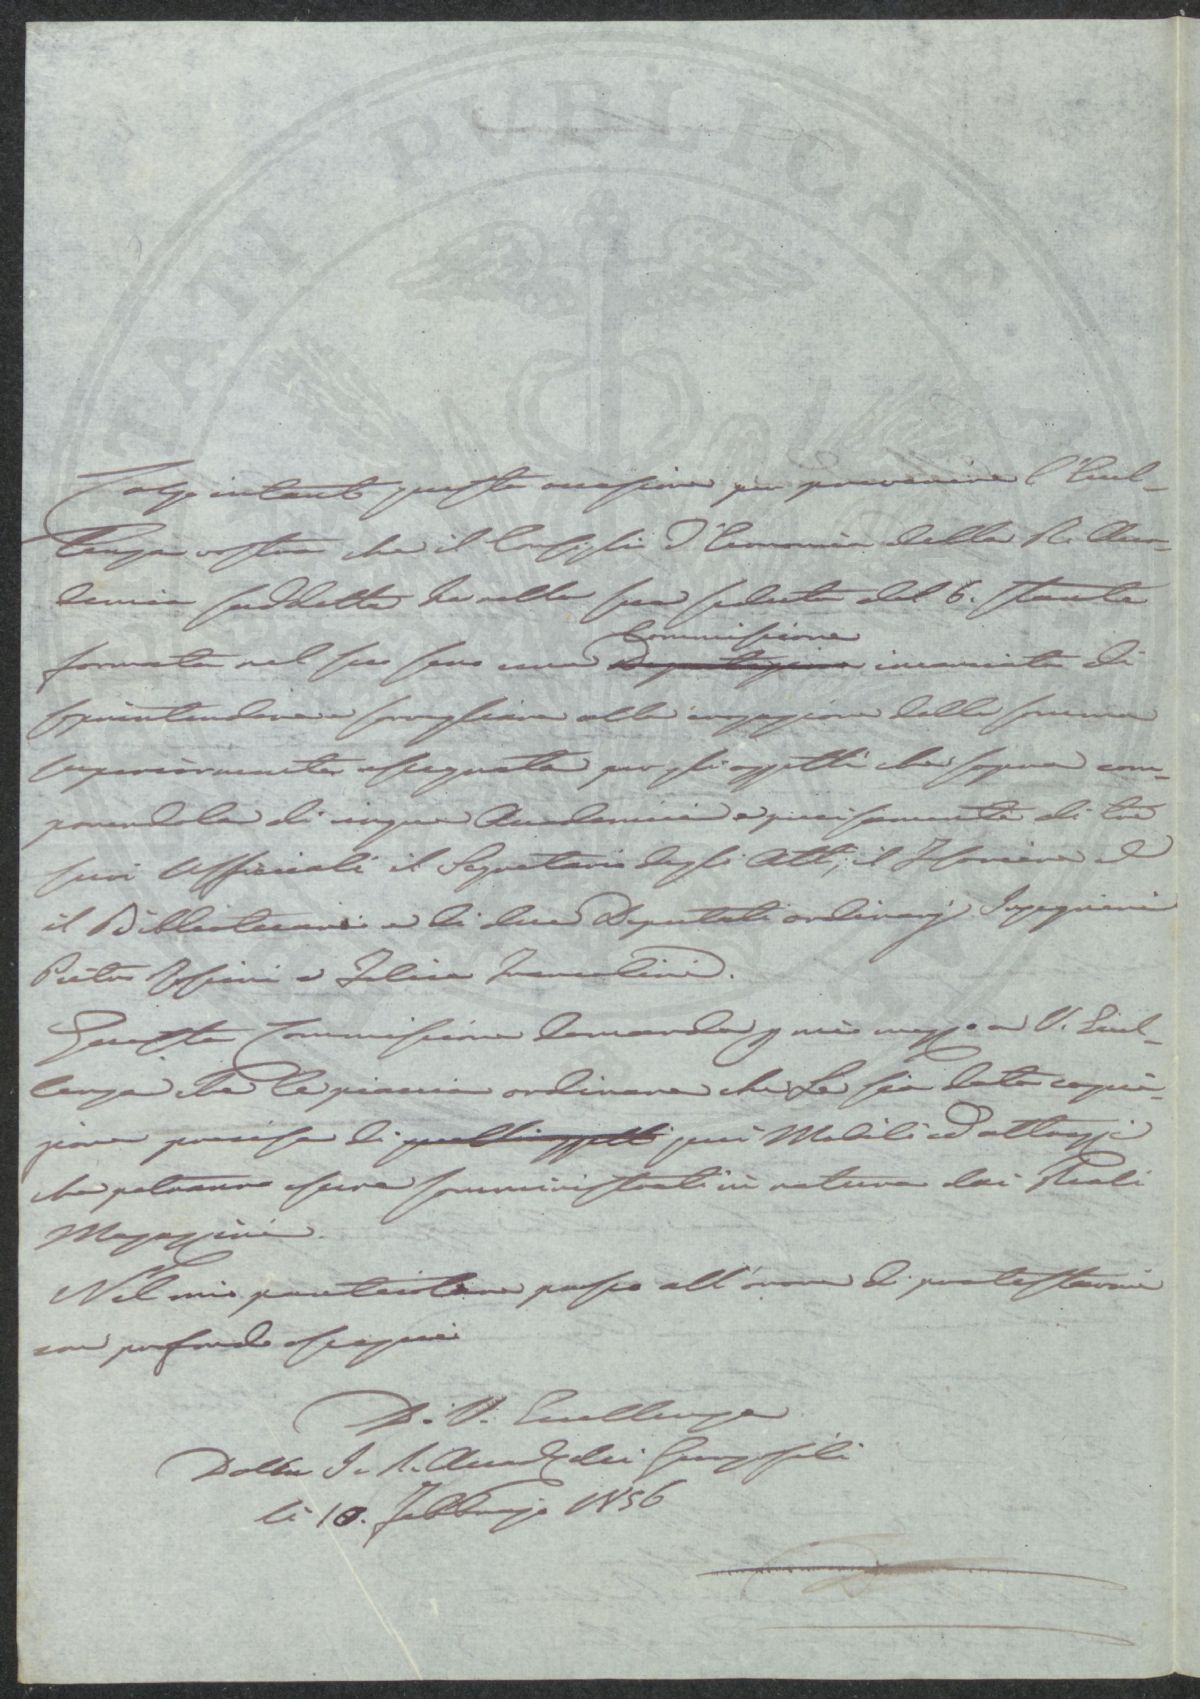 PROSPERITATI PUBLICAE
Colgo intanto questa occasione per prevenire l'Eccel-
lenza vostra che il Consiglio d'Economia della R. Acca-
demia suddetta ha nella sua seduta del 6. stante
formata nel suo seno una Deputazione Commissione incaricata di
soprintendere e sorvegliare alla erogazione della somma
superiormente assegnata per gli oggetti che sopra com-
ponendola di cinque Accademici e precisamente di tre
suoi Ufficiali il Segretario degli Atti, il Tesoriere ed
il Bibliotecario e di due Deputati ordinarj Ingegneri
Pietro e Felice Francolini.
Questa Commissione domanda p mio mezzo a V. Eccel-
lenza che le piaccia ordinare che Le sia data cogni-
zione precisa di quelli oggetti quei Mobili ed attrazzi
che potranno essere somministrati in natura dai Reali
Magazzini.
Nel mio particolare passo all'onore di protestarmi
con profondo ossequio
D. V. Eccellenza
Dalla I. e R. Accad. dei Georgofili
li 10. Febbrajo 1856